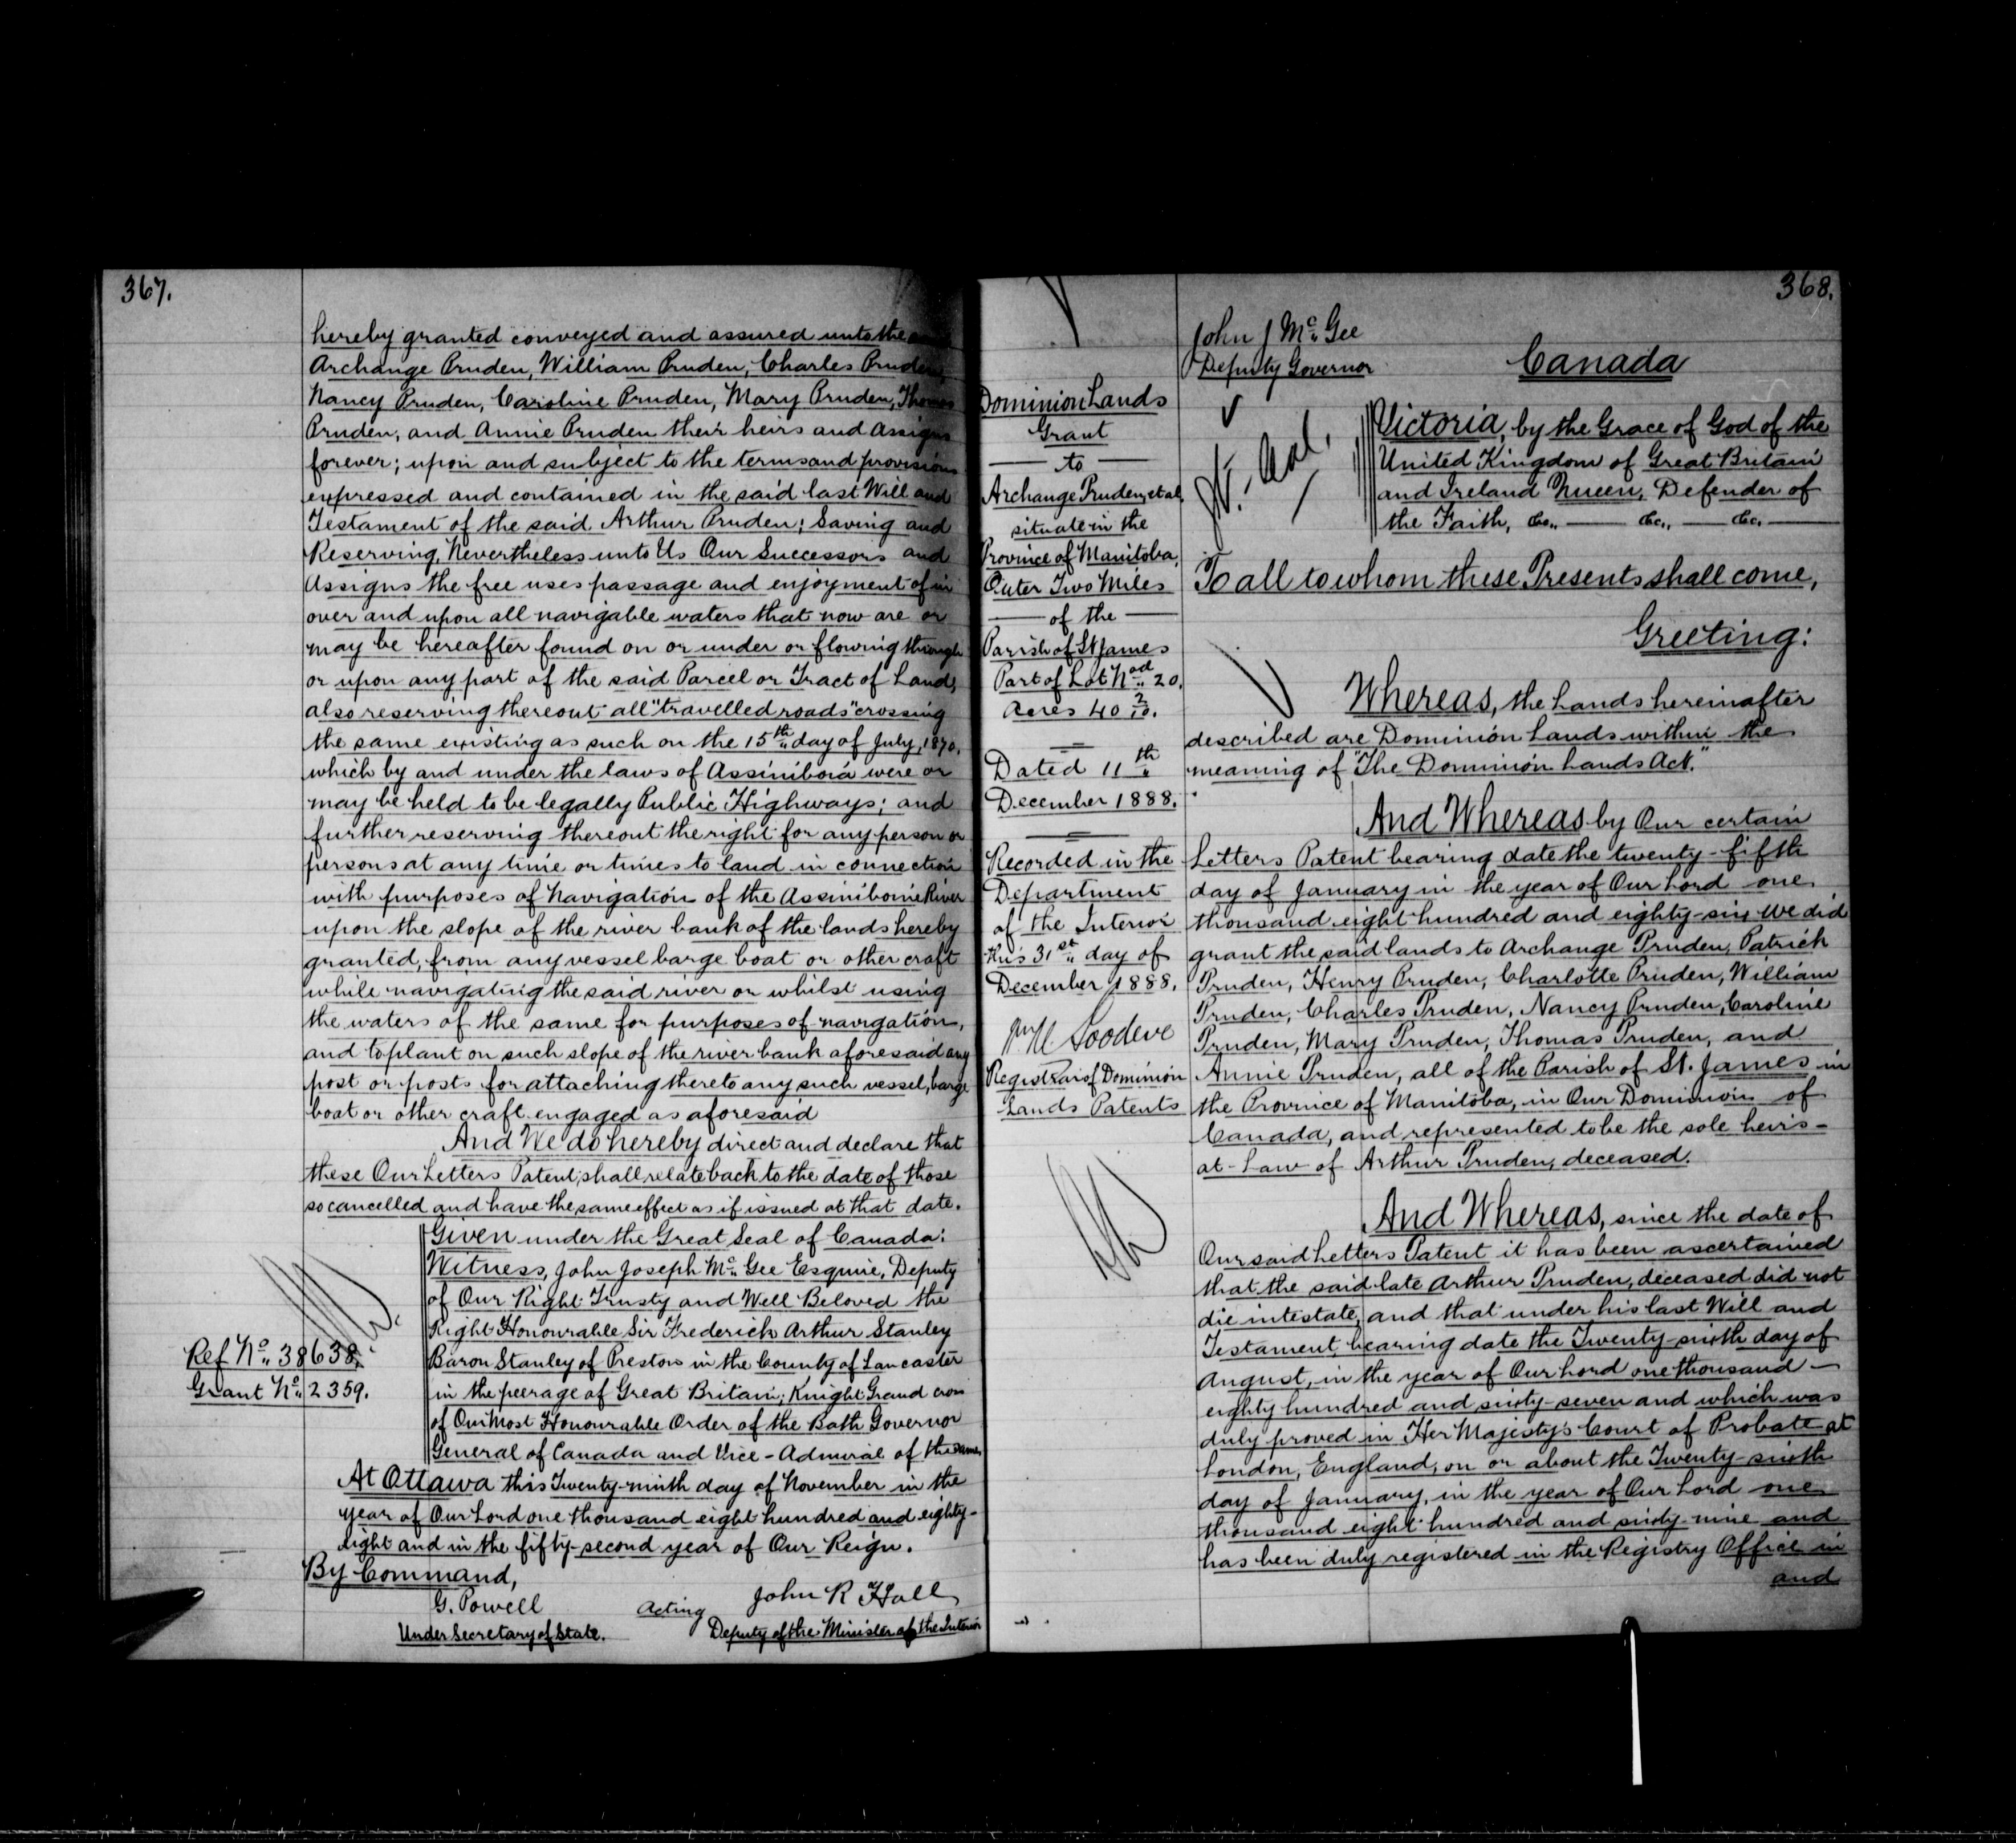 367.
hereby granted conveyed and assured unto the
Archange Pruden, William Pruden, Charles Pruden,
Nancy Pruden, Caroline Pruden, Mary Pruden, Thomas
Pruden, and Annie Pruden their heirs and Assigns
forever; upon and subject to the terms and provisions
expressed and contained in the said last Will and
Testament of the said Arthur Pruden; Saving and
Reserving, Nevertheless unto Us Our Successors and
Assigns the free uses passage and enjoyment of in
over and upon all navigable waters that now are or
may be hereafter found on or under or flowing through
or upon any part of the said Parcel or Tract of Land,
also reserving thereout all "travelled roads" crossing
the same existing as such on the 15th day of July, 1870,
which by and under the laws of Assiniboia were or
may be held to be legally Public Highways; and
further reserving thereout the right for any person or
persons at any time or times to land in connection
with purposes of Navigation of the Assiniboine River
upon the slope of the river bank of the lands hereby
granted, from any vessel barge boat or other craft
while navigating the said river or whilst using
the waters of the same for purposes of navigation,
and to plant on such slope of the river bank aforesaid any
post or posts for attaching thereto any such vessel, barge
boat or other craft engaged as aforesaid
And We do hereby direct and declare that
these Our Letters Patent, shall relate back to the date of those
so cancelled and have the same effect as if issued at that date.
Given under the Great Seal of Canada:
Witness, John Joseph Mc Gee Esquire, Deputy
of Our Right Trusty and Well Beloved the
Right Honourable Sir Frederick Arthur Stanley
Baron Stanley of Preston in the County of Lancaster
in the peerage of Great Britain; Knight Grand cross
of Our Most Honourable Order of the Bath Governor
General of Canada and Vice-Admiral of the same
At Ottawa this Twenty-ninth day of November in the
year of Our Lord one thousand eight hundred and eighty-
eight and in the fifty-second year of Our Reign.
By Command,
G. Powell
Under Secretary of State.
Acting John R Hall
Deputy of the Minister of the Interior
Ref No. 38638.
Grant No. 2359.
368.
John J Mc Gee
Deputy Governor
Canada
Dominion Lands
Grant
to
Archange Pruden, et al,
situate in the
Province of Manitoba,
Outer Two Miles
of the
Parish of St James
Part of Lot Nod 20.
Acres 40 2/10.
Dated 11th
December 1888.
Recorded in the
Department
of the Interior
this 31st day of
December 1888.
Wm M Goodeve
Registrar of Dominion
Lands Patents
Victoria, by the Grace of God of the
United Kingdom of Great Britain
and Ireland Queen, Defender of
the Faith, &c., — &c., — &c, —
To all to whom these Presents shall come,
Greeting:
Whereas, the Lands hereinafter
described are Dominion Lands within the
meaning of "The Dominion Lands Act."
And Whereas by Our certain
Letters Patent bearing date the twenty-fifth
day of January in the year of Our Lord one
thousand eight hundred and eighty-six We did
grant the said lands to Archange Pruden, Patrick
Pruden, Henry Pruden, Charlotte Pruden, William
Pruden, Charles Pruden, Nancy Pruden, Caroline
Pruden, Mary Pruden, Thomas Pruden, and
Annie Pruden, all of the Parish of St. James in
the Province of Manitoba, in Our Dominion of
Canada, and represented to be the sole heirs-
at-Law of Arthur Pruden, deceased.
And Whereas, since the date of
Our said Letters Patent it has been ascertained
that the said late Arthur Pruden, deceased did not
die intestate, and that under his last Will and
Testament bearing date the Twenty-sixth day of
August, in the year of Our Lord one thousand —
eighty hundred and sixty-seven and which was
duly proved in Her Majesty's Court of Probate at
London, England, on or about the Twenty-sixth
day of January, in the year of Our Lord one
thousand eight hundred and sixty-nine and
has been duly registered in the Registry Office in
and